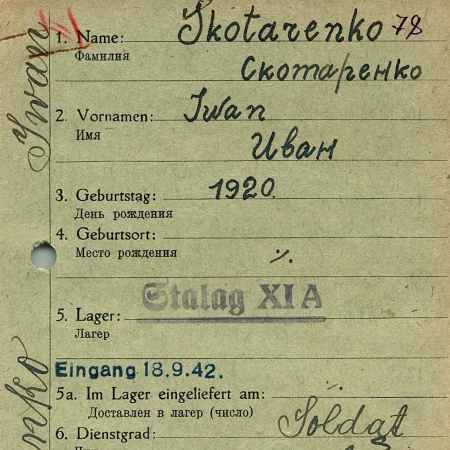 1. Name: Skotarenko 78
Фамилия
Скотаренко
2. Vornamen: Iwan
Имя
Иван
3. Geburtstag: 1920.
День рождения
4. Geburtsort:
Место рождения ./.
Stalag XI A
5. Lager:
Лагер
Eingang 18.9.42.
5a. Im Lager eingeliefert am: ./.
Доставлен в лагер (число)
6. Dienstgrad: Soldat
Iwan